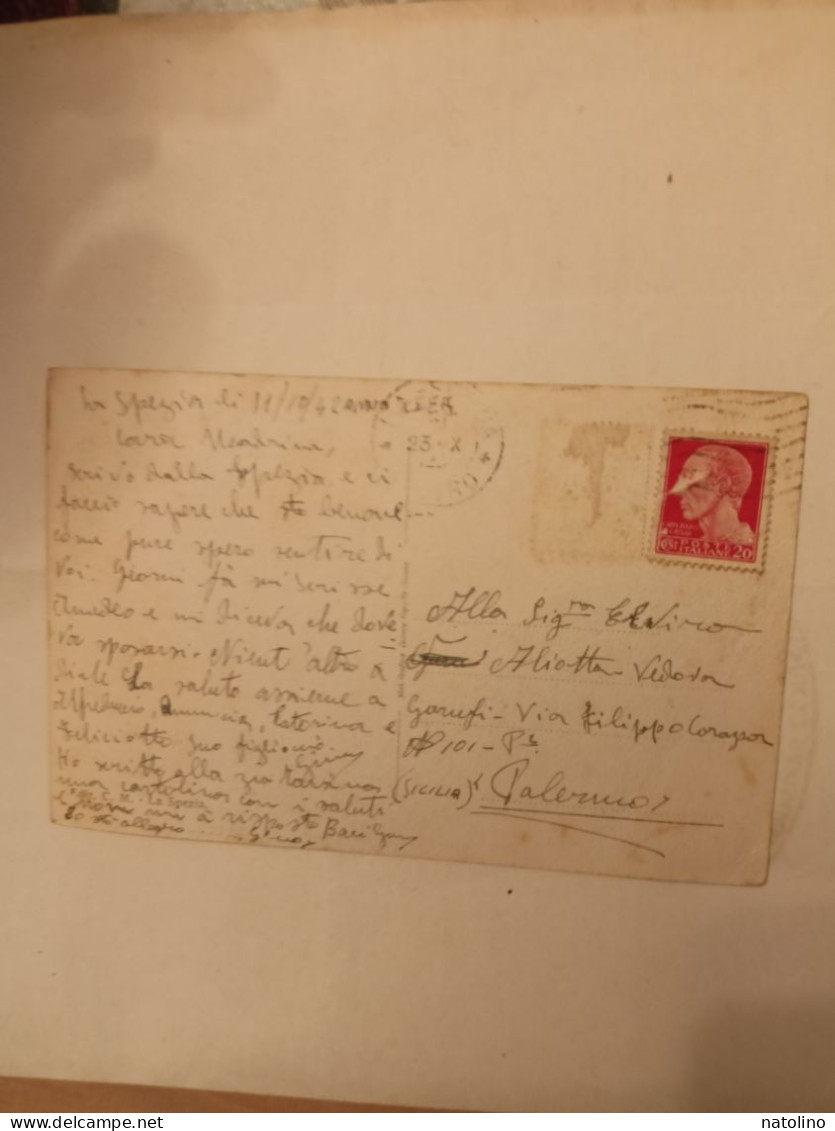 La Spezia li 18/10/42
Cara Madrina,
scrivo dalla Spezia e ci
faccio sapere che sto benone
come pure spero sentire di
Voi. Giorni fà mi scrisse
Amedeo e mi diceva che dove
va sposarsi. Nient'altro
La saluto assieme a
Alfredo, Nunzia, Caterina e
Feliciotto suo figlioccio
Gino
Ho scritto alla zia
una cartolina con i saluti
e non mi à risposto Baci Gino
La Spezia
23 X
POSTE
ITALIANE 20
Alla Sig.ra Elvira
Aliotta Vedova
Garufi - Via Filippo Corazza
N 101 - P
(SICILIA) Palermo
natolino